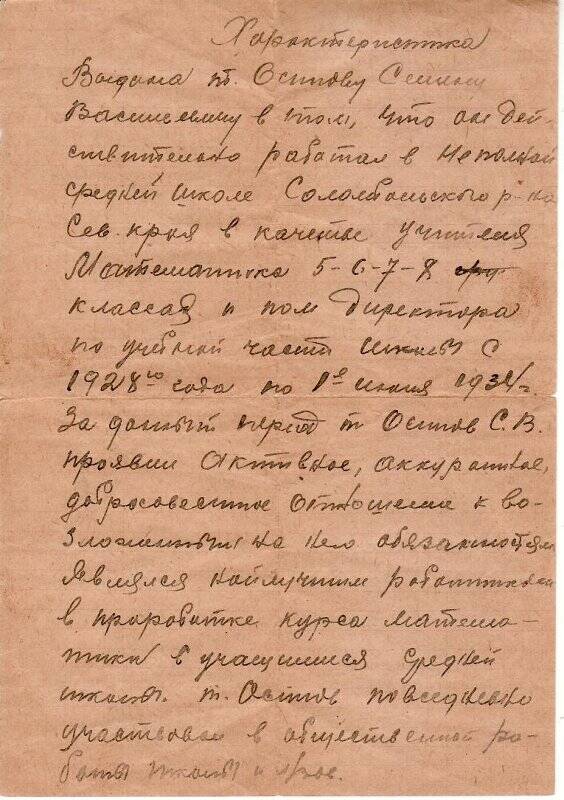 Характеристика
Выдана т. Осипову Семену
Васильевичу в том, что он дей-
ствительно работал в Неполной
средней школе Соломбальского р-на
Сев. края в качестве учителя
Математика 5-6-7-8
классах и пом директора
по учебной части школы с
1928го года по 1е июня 1934г.
За данный период т Осипов С.В.
проявил активное, аккуратное,
добросовестное отношение к во-
зложенным на него обязанностям
Являлся наилучшим работником
в проработке курса матема-
тики в учащимися средней
школы. т. Осипов повседневно
участвовал в общественной ра-
боты школы и